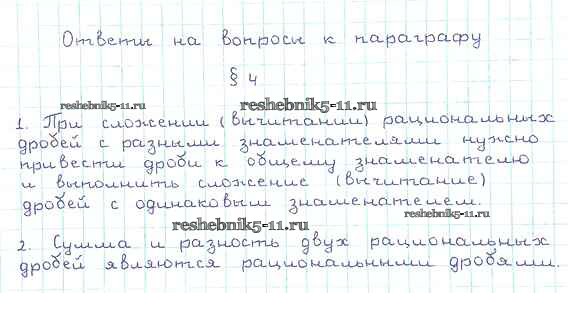 Ответы на вопросы к параграфу
§ 4
reshebnik5-11.ru reshebnik5-11.ru
1. При сложении (вычитании) рациональных
дробей с разными знаменателями нужно
привести дроби к общему знаменателю
и выполнить сложение (вычитание)
дробей с одинаковым знаменателем.
reshebnik5-11.ru
reshebnik5-11.ru
2. Сумма и разность двух рациональных
дробей являются рациональными дробями.